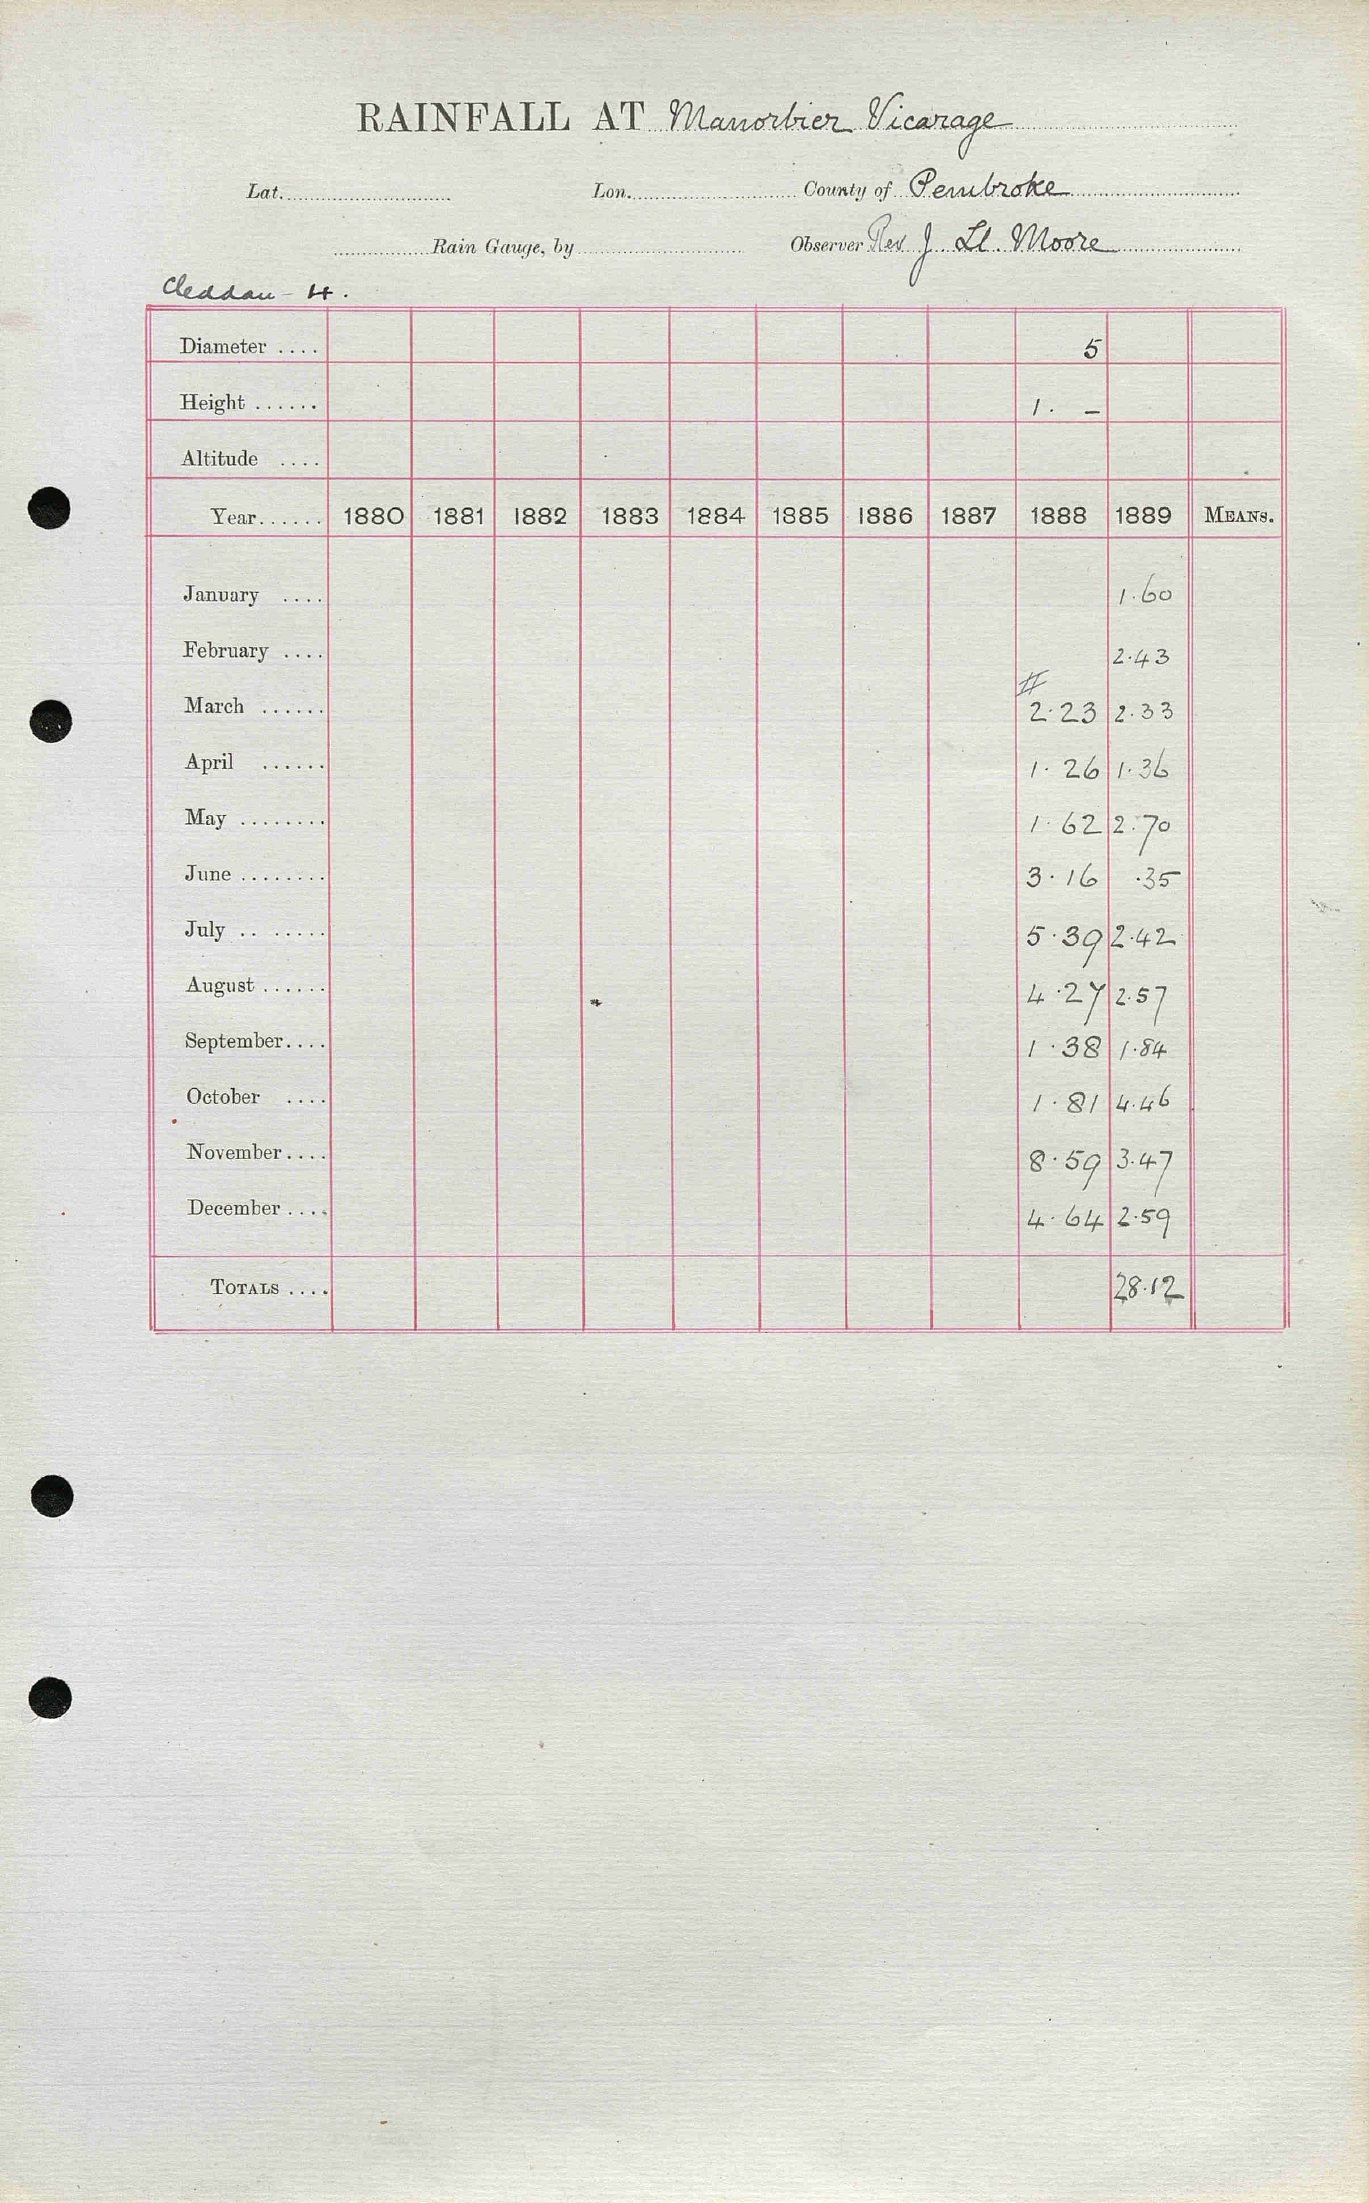 RAINFALL AT Manorbier Vicarage
Lat. Lon. County of Pembroke
Rain Gauge, by Observer Rev J Ll. Moore
Cleddau - 4.
Diameter .... 5
Height ...... 1. –
Altitude ....
Year...... 1880 1881 1882 1883 1884 1885 1886 1887 1888 1889 MEANS.
January .... 1.60
February .... 2.43
March ...... 2.23 2.33
April ...... 1.26 1.36
May ........ 1.62 2.70
June ........ 3.16 .35
July .. ...... 5.39 2.42
August ...... 4.27 2.57
September.... 1.38 1.84
October .... 1.81 4.46
November.... 8.59 3.47
December .... 4.64 2.59
TOTALS .... 28.12